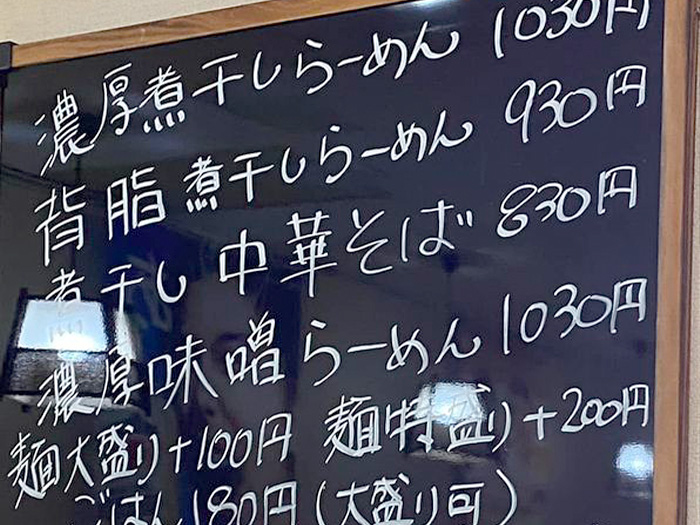 濃厚煮干しらーめん 1030円
背脂煮干しらーめん 930円
煮干し中華そば 830円
濃厚味噌らーめん 1030円
麺大盛り+100円 麺特盛り+200円
ごはん 180円(大盛り可)